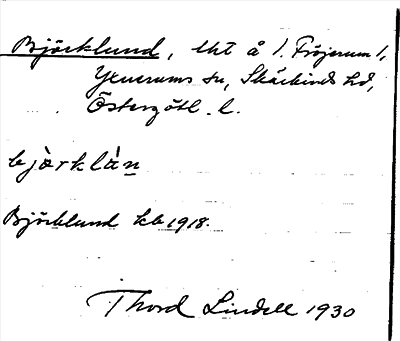 Björklund, lht å 1. Fröjerum 1,
Yxnerums sn, Skärkinds hd,
Östergötl. l.
bjärklàn
Björklund kb 1918.
Thord Lindell 1930